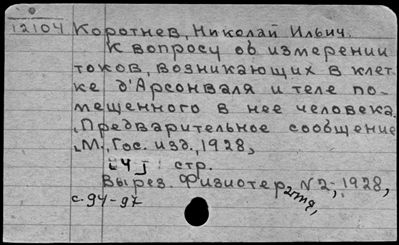 12104 Коротнев, Николай Ильич.
К вопросу об измерении
токов, возникающих в клет-
ке д'Арсонваля и теле по-
мещенного в нее человека.
Предварительное сообщение
М., Гос. изд., 1928,
[4] стр.
Вырез. Физиотерапия, N2, 1928,
с. 94-97